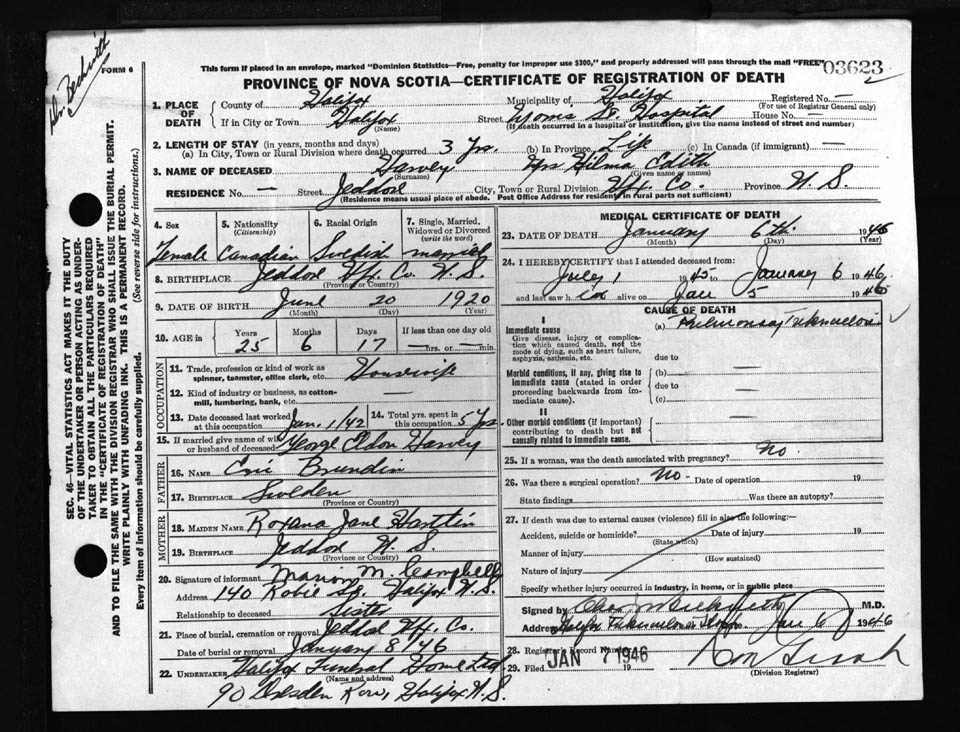 Dr. Beckwith
FORM 6
This form if placed in an envelope, marked "Dominion Statistics—Free, penalty for improper use $300," and properly addressed will pass through the mail "FREE"
03623
PROVINCE OF NOVA SCOTIA—CERTIFICATE OF REGISTRATION OF DEATH
1. PLACE OF DEATH
County of Halifax Municipality of Halifax Registered No. —
(For use of Registrar General only)
If in City or Town Halifax Street Morris St. Hospital House No. —
(Name) (If death occurred in a hospital or institution, give the name instead of street and number)
2. LENGTH OF STAY (in years, months and days)
(a) In City, Town or Rural Division where death occurred 3 Yrs. (b) In Province Life (c) In Canada (if immigrant) —
3. NAME OF DECEASED Harvey Mrs Hilma Edith
(Surname) (Given name or names)
RESIDENCE No. — Street Jeddore City, Town or Rural Division Hfx. Co. Province N. S.
(Residence means usual place of abode. Post Office address for residents in rural parts not sufficient)
4. Sex 5. Nationality (Citizenship) 6. Racial Origin 7. Single, Married, Widowed or Divorced (write the word)
Female Canadian Swedish married
8. BIRTHPLACE Jeddore Hfx. Co. N. S.
(Province or Country)
9. DATE OF BIRTH June 20 1920
(Month) (Day) (Year)
10. AGE in Years Months Days If less than one day
25 6 17 — hrs. or — min.
OCCUPATION
11. Trade, profession or kind of work as spinner, teamster, office clerk, etc. Housewife
12. Kind of industry or business, as cotton-mill, lumbering, bank, etc. —
13. Date deceased last worked at this occupation Jan. 1/42 14. Total yrs. spent in this occupation 5 Yrs.
15. If married give name of wife or husband of deceased George Eldon Harvey
FATHER
16. NAME Eric Brundin
17. BIRTHPLACE Sweden
(Province or Country)
MOTHER
18. MAIDEN NAME Roxana Jane Hartlin
19. BIRTHPLACE Jeddore N. S.
(Province or Country)
20. Signature of informant Marion M. Campbell
Address 140 Robie St. Halifax N. S.
Relationship to deceased Sister
21. Place of burial, cremation or removal Jeddore Hfx. Co.
Date of burial or removal January 8/46
22. UNDERTAKER Halifax Funeral Home Ltd
(Name and address)
90 Dresden Row, Halifax N. S.
MEDICAL CERTIFICATE OF DEATH
23. DATE OF DEATH January 6th 1946
(Month) (Day) (Year)
24. I HEREBY CERTIFY that I attended deceased from:
July 1 1945 to January 6 1946
and last saw her alive on Jan 5 1946
CAUSE OF DEATH
I
Immediate cause
Give disease, injury or complication which caused death, not the mode of dying, such as heart failure, asphyxia, asthenia, etc.
(a) Pulmonary Tuberculosis
due to
Morbid conditions, if any, giving rise to immediate cause (stated in order proceeding backwards from immediate cause).
(b) —
due to
(c) —
II
Other morbid conditions (if important) contributing to death but not causally related to immediate cause.
—
25. If a woman, was the death associated with pregnancy? No.
26. Was there a surgical operation? No. Date of operation 19
State findings Was there an autopsy?
27. If death was due to external causes (violence) fill in also the following:—
Accident, suicide or homicide? Date of injury 19
(State which)
Manner of injury
(How sustained)
Nature of injury
Specify whether injury occurred in industry, in home, or in public place
Signed by M.D.
Address Halifax Tuberculosis Hosp. Jan 6 1946
28. Registrar's Record Number
29. Filed JAN 7 1946 19
(Division Registrar)
SEC. 46—VITAL STATISTICS ACT MAKES IT THE DUTY
OF THE UNDERTAKER OR PERSON ACTING AS UNDERTAKER TO OBTAIN ALL THE PARTICULARS REQUIRED
IN THE "CERTIFICATE OF REGISTRATION OF DEATH"
AND TO FILE THE SAME WITH THE DIVISION REGISTRAR WHO SHALL ISSUE THE BURIAL PERMIT.
WRITE PLAINLY WITH UNFADING INK. THIS IS A PERMANENT RECORD.
Every item of information should be carefully supplied. (See reverse side for instructions.)